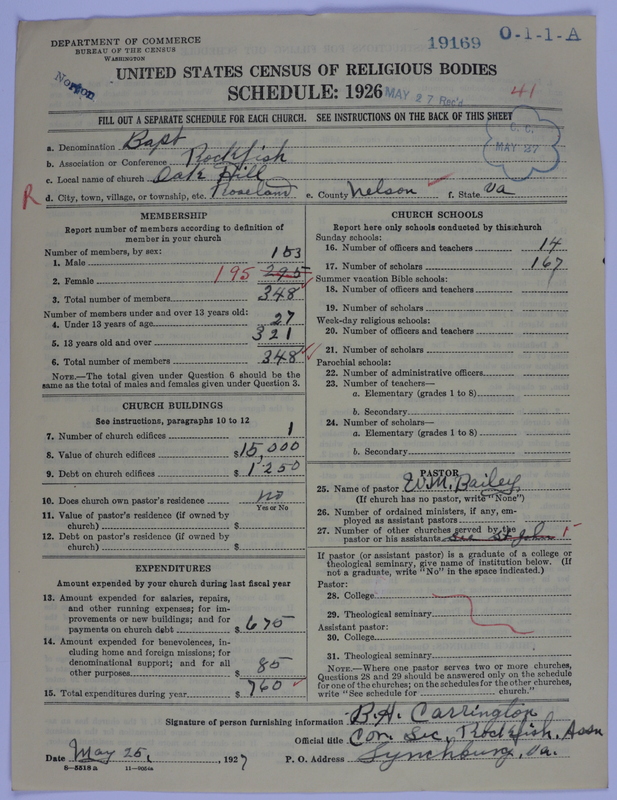 DEPARTMENT OF COMMERCE
BUREAU OF THE CENSUS
WASHINGTON
Norton
19169
O-1-1-A
UNITED STATES CENSUS OF RELIGIOUS BODIES
SCHEDULE: 1926
MAY 27 Rec'd
41
FILL OUT A SEPARATE SCHEDULE FOR EACH CHURCH. SEE INSTRUCTIONS ON THE BACK OF THIS SHEET
C. C.
MAY 27
a. Denomination Bapt
b. Association or Conference Rockfish
c. Local name of church Oak Hill
R d. City, town, village, or township, etc. Roseland e. County Nelson f. State Va
MEMBERSHIP
Report number of members according to definition of
member in your church
Number of members, by sex:
1. Male 153
2. Female 195 295
3. Total number of members 348
Number of members under and over 13 years old:
4. Under 13 years of age 27
5. 13 years old and over 321
6. Total number of members 348
NOTE.—The total given under Question 6 should be the
same as the total of males and females given under Question 3.
CHURCH BUILDINGS
See instructions, paragraphs 10 to 12
7. Number of church edifices 1
8. Value of church edifices $15,000
9. Debt on church edifices $ 1250
10. Does church own pastor's residence no
Yes or No
11. Value of pastor's residence (if owned by
church) $
12. Debt on pastor's residence (if owned by
church) $
EXPENDITURES
Amount expended by your church during last fiscal year
13. Amount expended for salaries, repairs,
and other running expenses; for im-
provements or new buildings; and for
payments on church debt $ 675
14. Amount expended for benevolences, in-
cluding home and foreign missions; for
denominational support; and for all
other purposes $ 85
15. Total expenditures during year $ 760
CHURCH SCHOOLS
Report here only schools conducted by this church
Sunday schools:
16. Number of officers and teachers 14
17. Number of scholars 167
Summer vacation Bible schools:
18. Number of officers and teachers
19. Number of scholars
Week-day religious schools:
20. Number of officers and teachers
21. Number of scholars
Parochial schools:
22. Number of administrative officers
23. Number of teachers—
a. Elementary (grades 1 to 8)
b. Secondary
24. Number of scholars—
a. Elementary (grades 1 to 8)
b. Secondary
PASTOR
25. Name of pastor E.W.M. Bailey
(If church has no pastor, write "None")
26. Number of ordained ministers, if any, em-
ployed as assistant pastors
27. Number of other churches served by the
pastor or his assistants See St John 1
If pastor (or assistant pastor) is a graduate of a college or
theological seminary, give name of institution below. (If
not a graduate, write "No" in the space indicated.)
Pastor:
28. College
29. Theological seminary
Assistant pastor:
30. College
31. Theological seminary
NOTE.—Where one pastor serves two or more churches,
Questions 28 and 29 should be answered only on the schedule
for one of the churches; on the schedules for the other churches,
write "See schedule for church."
Signature of person furnishing information B.H. Carrington
Official title Cor. Sec, Rockfish, Assn
Date May 25, 1927 P. O. Address Lynchburg, Va.
8—5518 a 11—9054a